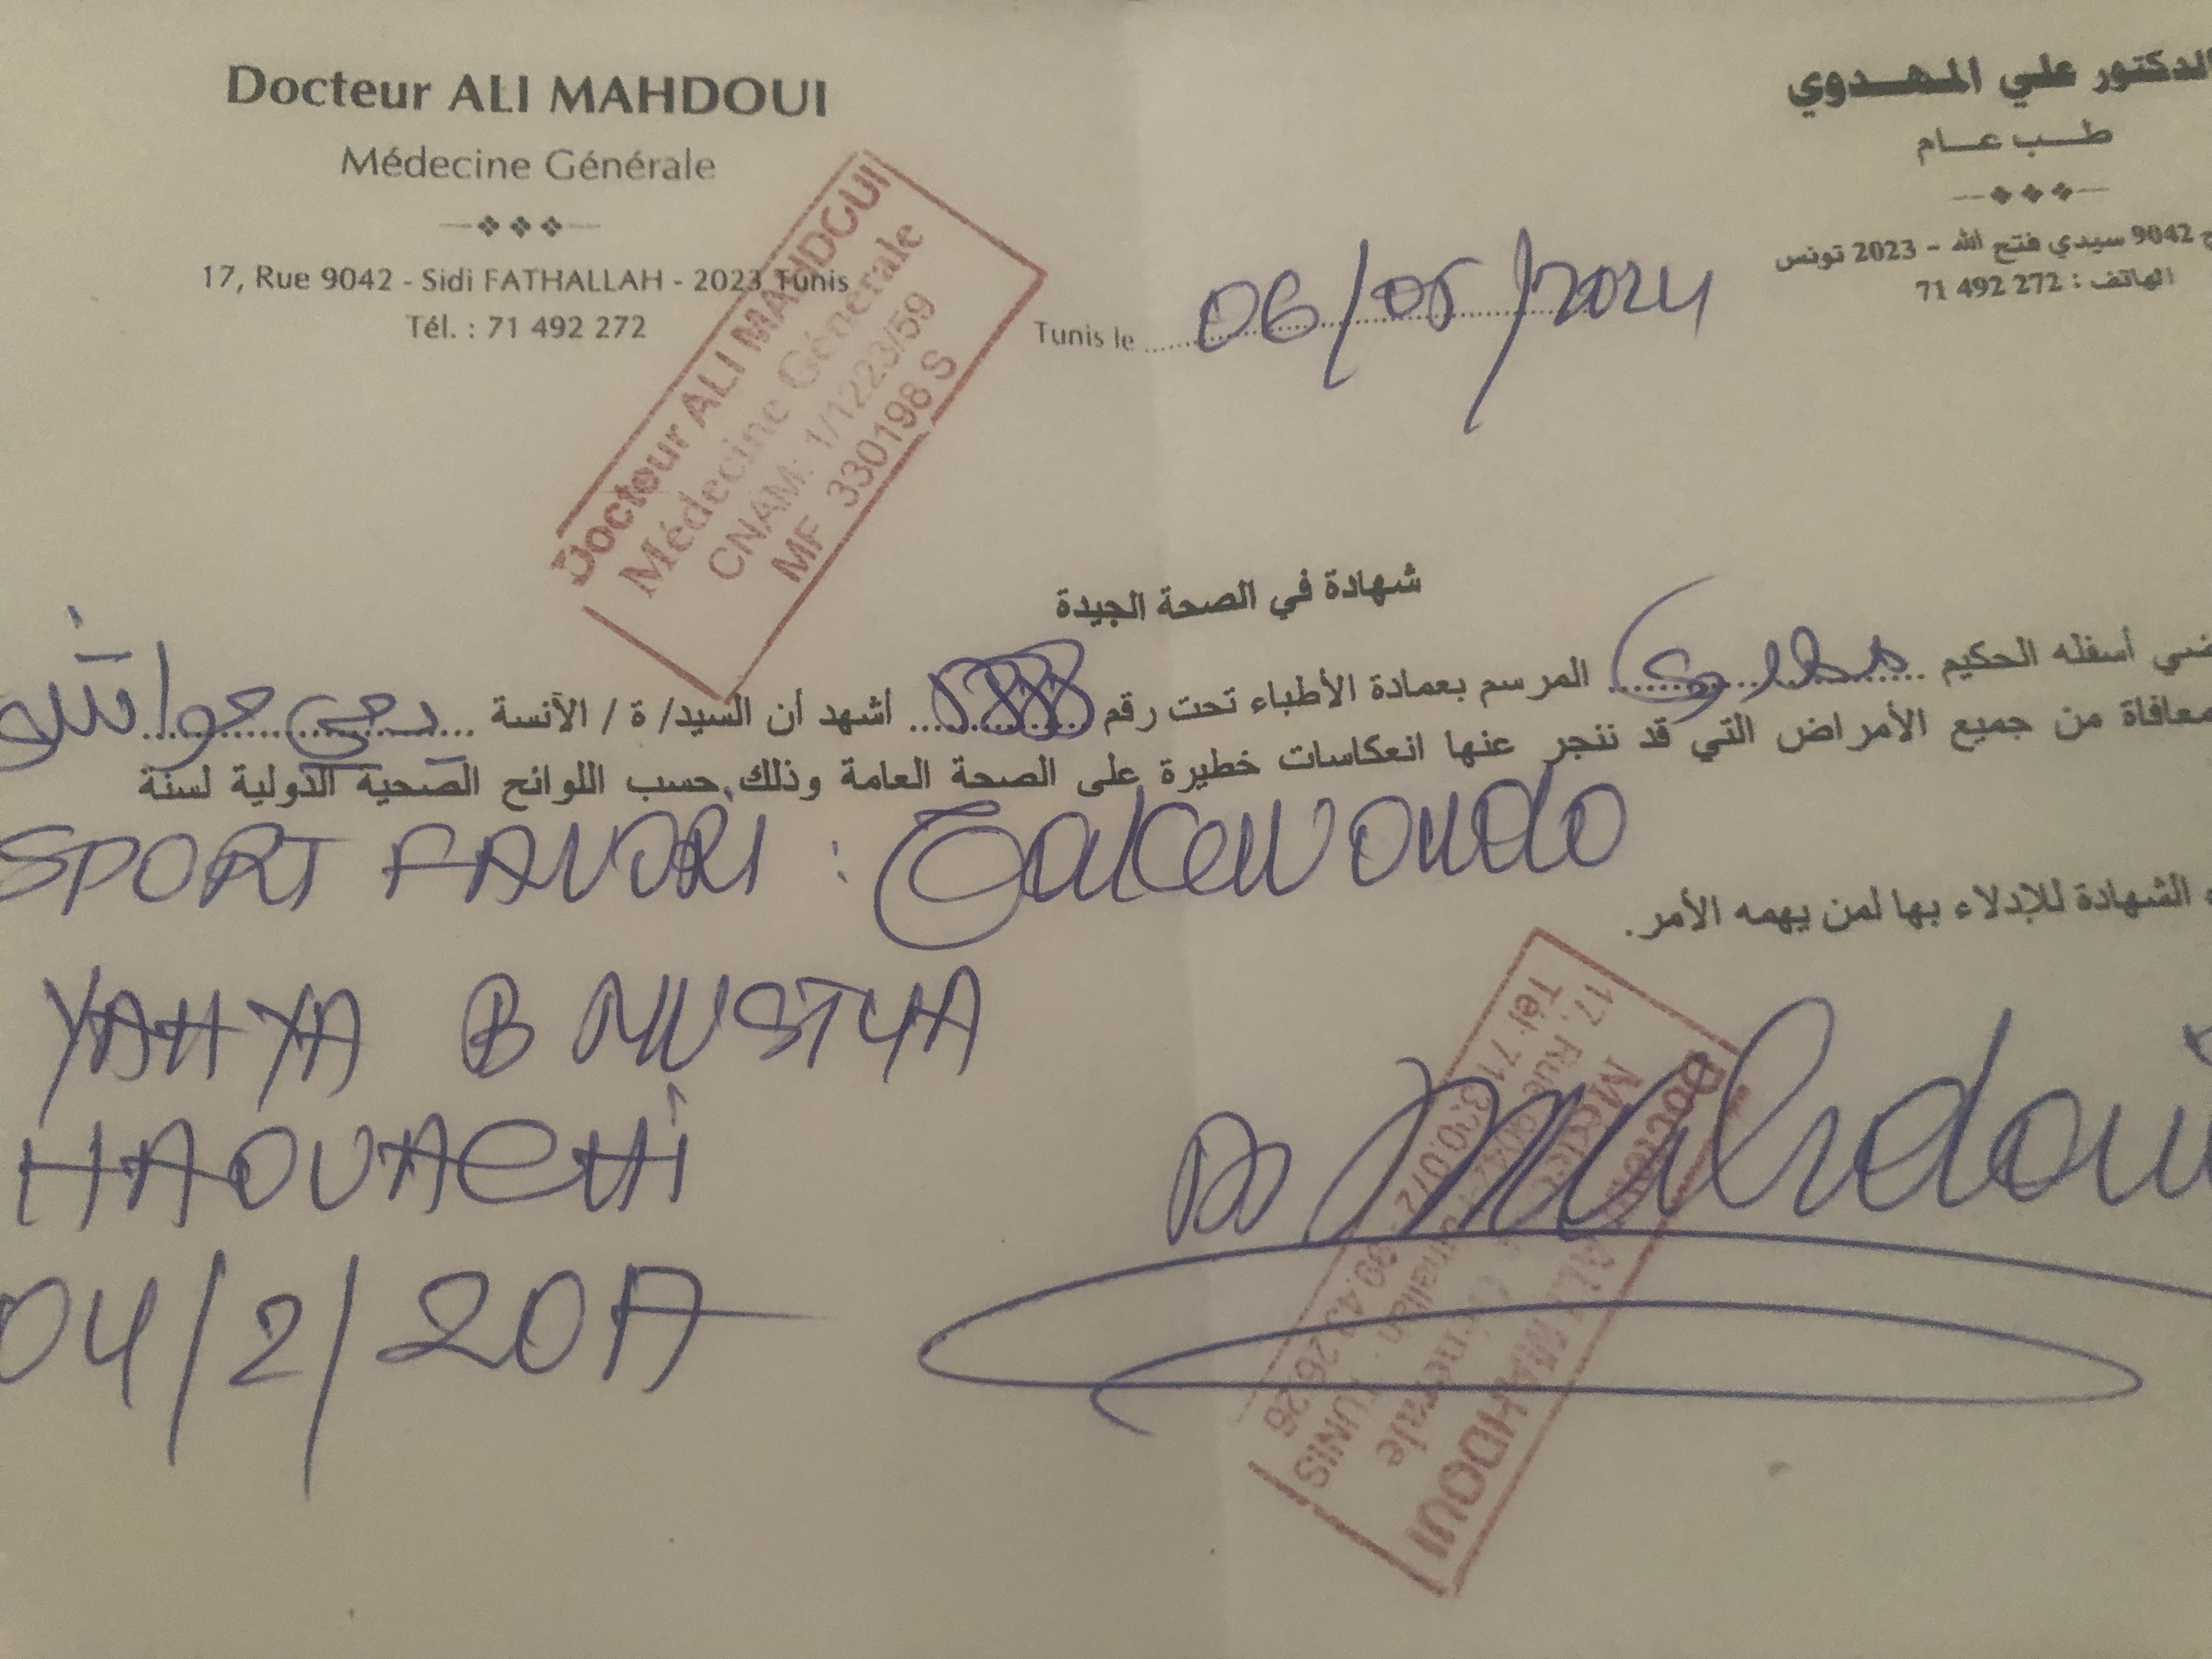 Docteur ALI MAHDOUI
Médecine Générale
17, Rue 9042 - Sidi FATHALLAH - 2023 Tunis
Tél. : 71 492 272
الدكتور علي المهدوي
طب عام
9042 سيدي فتح الله - 2023 تونس
الهاتف : 272 492 71
Docteur ALI MAHDOUI
Médecine Générale
CNAM: 1/1223/59
MF 330198 S
Tunis le 06/05/2024
شهادة في الصحة الجيدة
أسفله الحكيم مهدوي المرسم بعمادة الأطباء تحت رقم أشهد أن السيد/ ة / الآنسة يحي حواشي
معافاة من جميع الأمراض التي قد تنجر عنها انعكاسات خطيرة على الصحة العامة وذلك حسب اللوائح الصحية الدولية لسنة
SPORT FAVORI : Taekwondo
الشهادة للإدلاء بها لمن يهمه الأمر.
YAHYA B
HAOUACHI
04/2/20
Dr Mahdoui
Docteur ALI MAHDOUI
Médecine Générale
17, Rue 9042 Fathallah TUNIS